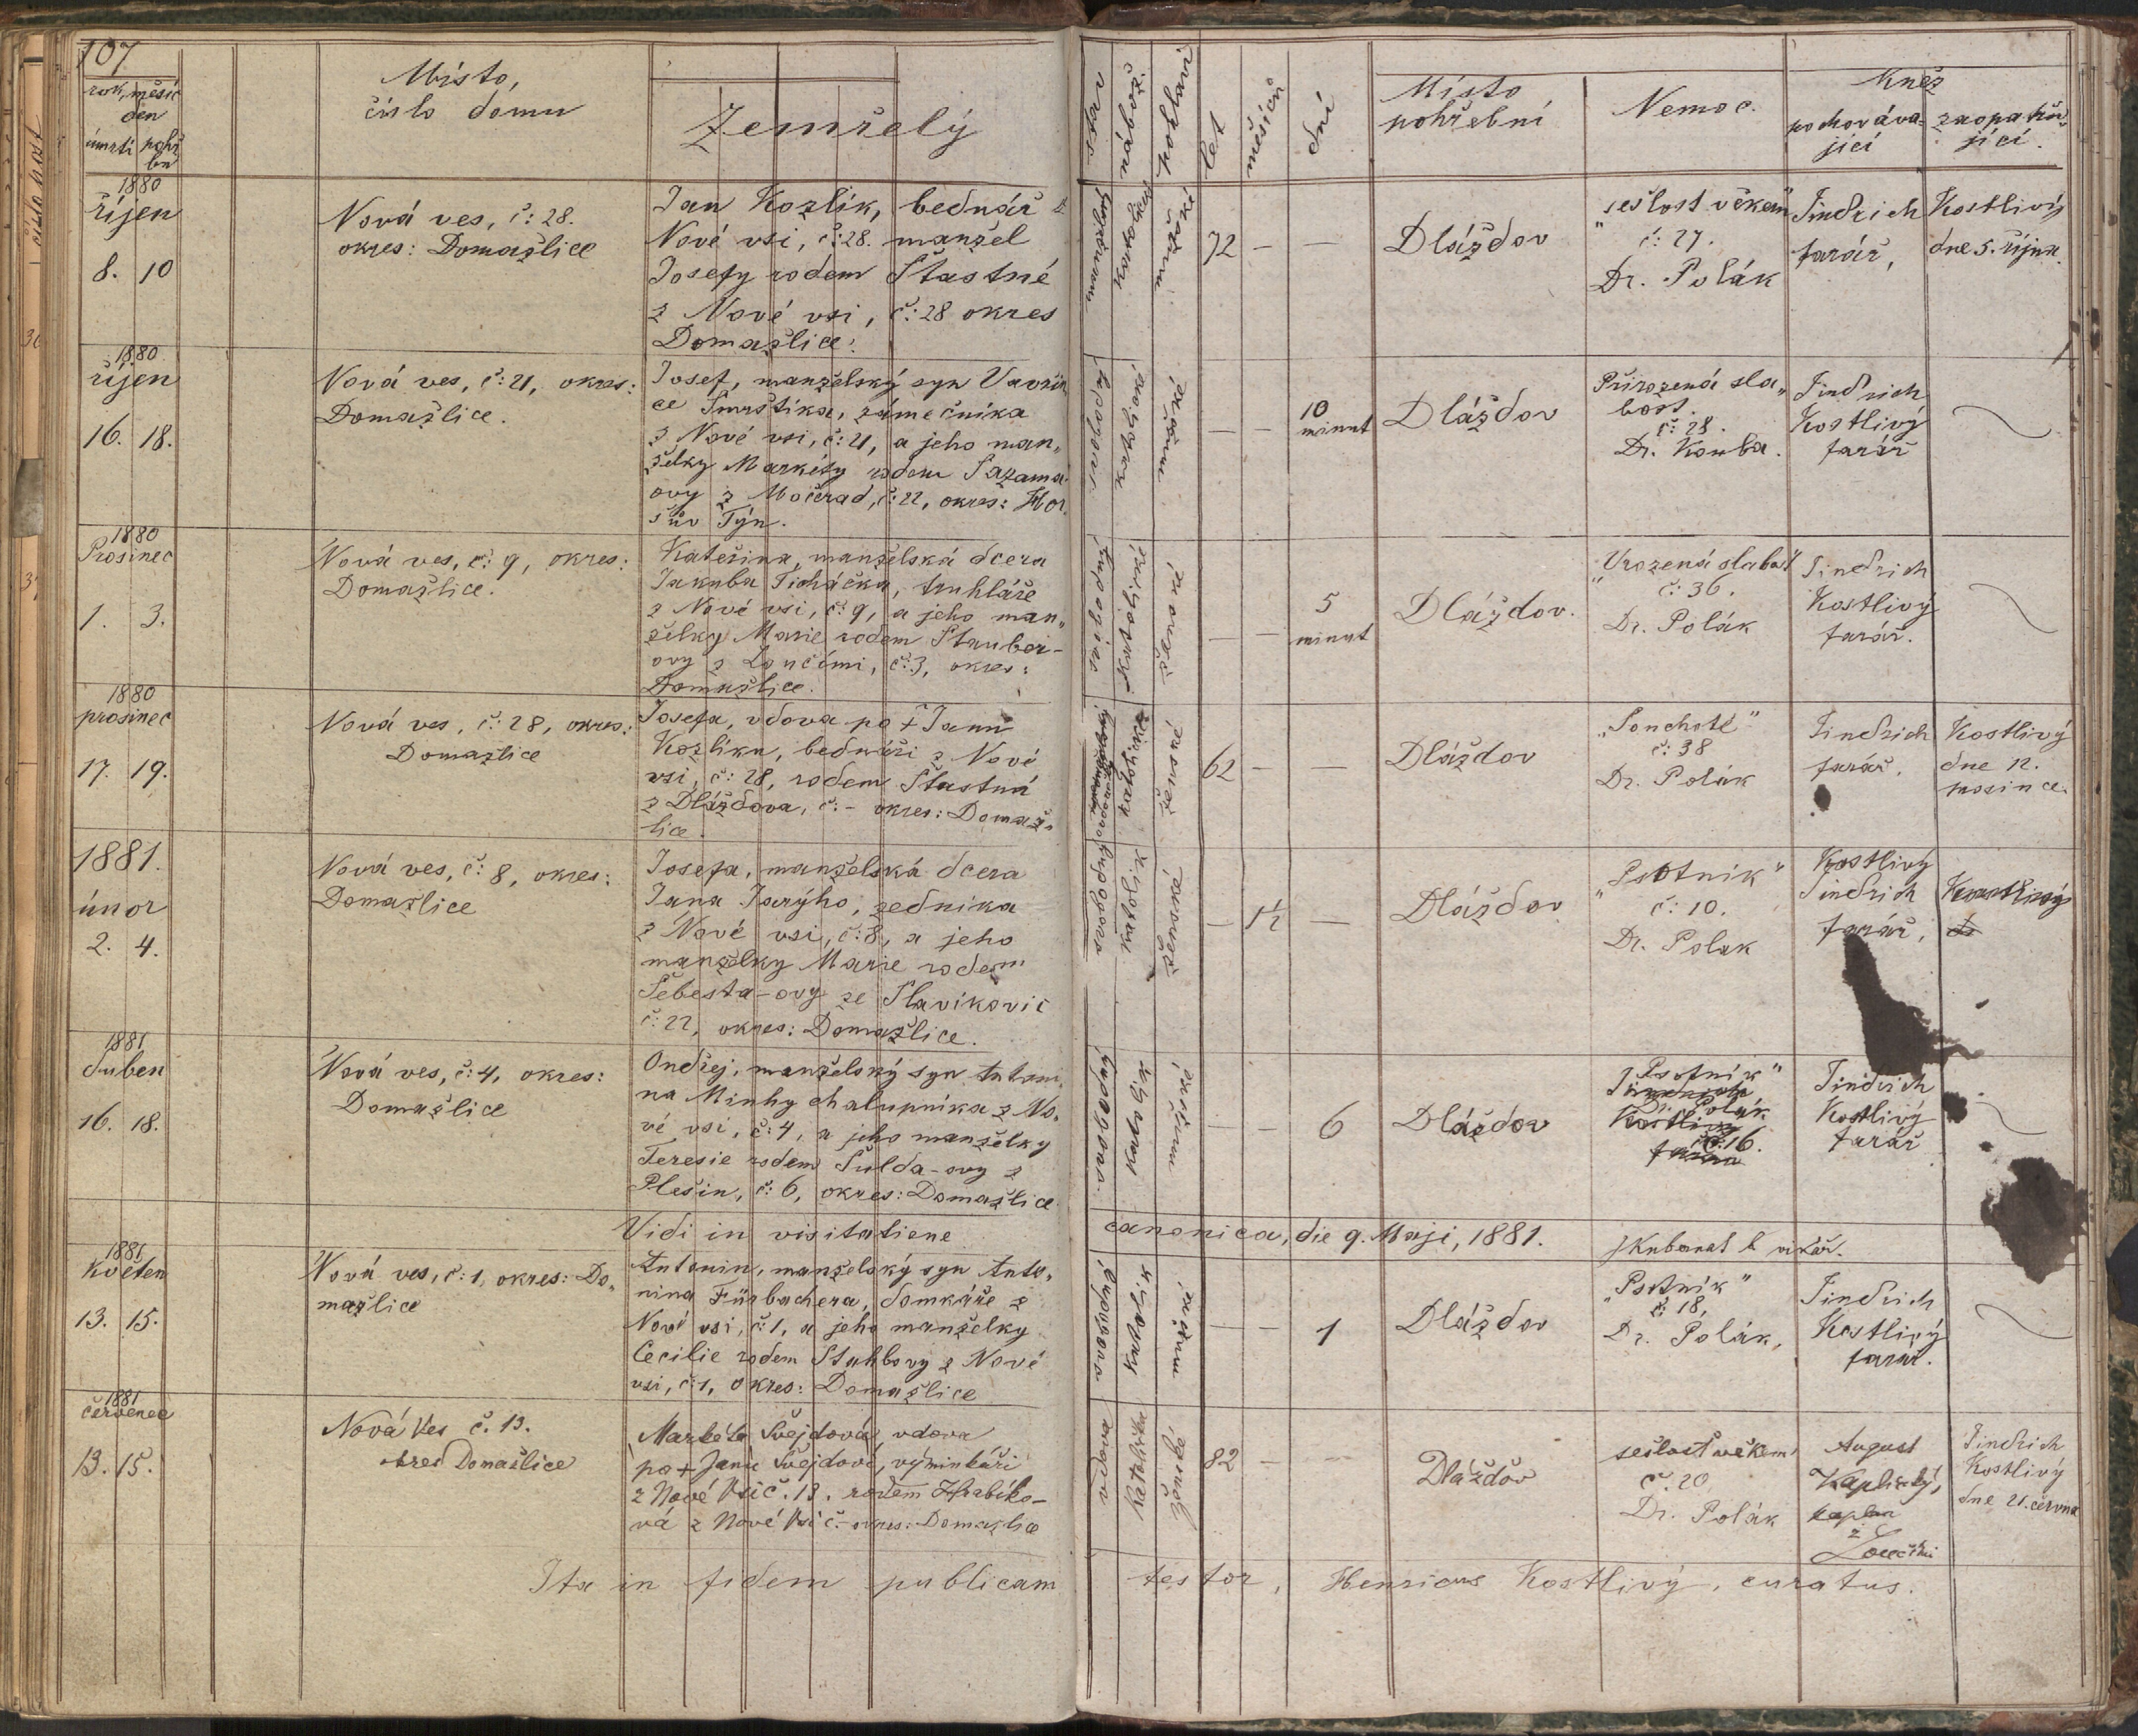 107
rok, měsíc
den
úmrtí pohř
bu
Místo,
číslo domu
Zemřelý
nábož.
pohlaví
let
měsíců
dní
Místo
pohřební
Nemoc.
Kněz
pochováva-
jící
zaopatřu-
jící.
1880
říjen
8. 10
Nová ves, č: 28.
okres: Domažlice
Jan Kozlík, bednář z
Nové vsi, č: 28. manžel
Josefy rodem Šťastné
z Nové vsi, č: 28 okres
Domažlice.
katolické
mužské
72 — —
Dlážďov
"sešlost věkem"
č: 27.
Dr. Polák
Jindřich
farář,
Kostlivý
dne 5. října.
1880
říjen
16. 18.
Nová ves, č: 21, okres:
Domažlice.
Josef, manželský syn Vavřin
ce Smrštíka, zámečníka
z Nové vsi, č: 21, a jeho man„
želky Markéty rodem Sazama
ovy z Močerad, č: 22, okres: Hor
šův Týn.
katolické
mužské
— — 10
minut
Dlážďov
Přirozená sla„
bost.
č: 28.
Dr. Kouba.
Jindřich
Kostlivý
farář
1880
Prosinec
1. 3.
Nová ves, č: 9, okres:
Domažlice.
Kateřina, manželská dcera
Jakuba Ticháčka, truhláře
z Nové vsi, č: 9, a jeho man„
želky Marie rodem Stauber-
ovy z Loučimi, č: 3, okres:
Domažlice.
katolické
ženské
— — 5
minut
Dlážďov.
"Vrozená slabost
č: 36.
Dr. Polák
Jindřich
Kostlivý
farář.
1880
prosinec
17. 19.
Nová ves, č: 28, okres:
Domažlice
Josefa, vdova po † Janu
Kozlíku, bednáři z Nové
vsi, č: 28, rodem Šťastná
z Dlážďova, č: - okres: Domaž„
lice.
katolické
ženské
62 — —
Dlážďov
„Souchotě"
č: 38
Dr. Polák
Jindřich
farář.
Kostlivý
dne 12.
prosince.
1881.
únor
2. 4.
Nová ves, č: 8, okres:
Domažlice
Josefa, manželská dcera
Jana Jarýho, zedníka
z Nové vsi, č: 8, a jeho
manželky Marie rodem
Šebesta-ovy ze Slavíkovic
č: 22, okres: Domažlice.
katolík
ženské
— 1½ —
Dlážďov
„Psotník"
č: 10.
Dr. Polák
Kostlivý
Jindřich
farář,
Kostlivý
1881
duben
16. 18.
Nová ves, č: 4, okres:
Domažlice
Ondřej, manželský syn Antoni
na Minhy chalupníka z No„
vé vsi, č: 4, a jeho manželky
Teresie rodem Šulda-ovy z
Plešin, č: 6, okres: Domažlice
katolík
mužské
— — 6
Dlážďov
„Psotník"
Jindřich
Dr. Polák
Kostlivý
č: 16.
farář
Jindřich
Kostlivý
farář
Vidi in visitatione canonica, die 9. Maji, 1881.
1881
Květen
13. 15.
Nová ves, č: 1, okres: Do„
mažlice
Antonin, manželský syn Anto„
nina Fürbachera, domkáře z
Nové vsi, č: 1, a jeho manželky
Cecilie rodem Stahbovy z Nové
vsi, č: 1, okres: Domažlice
katolík
mužské
— — 1
Dlážďov
„Psotník"
č: 18,
Dr. Polák,
Jindřich
Kostlivý
farář.
1881
červenec
13. 15.
Nová Ves č. 13.
okres Domažlice
Markéta Švejdová, vdova
po † Janu Švejdovi, výminkáři
z Nové Vsi č. 13. rodem Hrabíko-
vá z Nové Vsi č.- okres: Domažlice
vdova
katolické
ženské
82 — —
Dlážďov
sešlost věkem
č. 20
Dr. Polák
August
Kaplický,
kaplan
z
Loučimi
Jindřich
Kostlivý
dne 21. června
Ita in fidem publicam testor, Henricus Kostlivý, curatus.